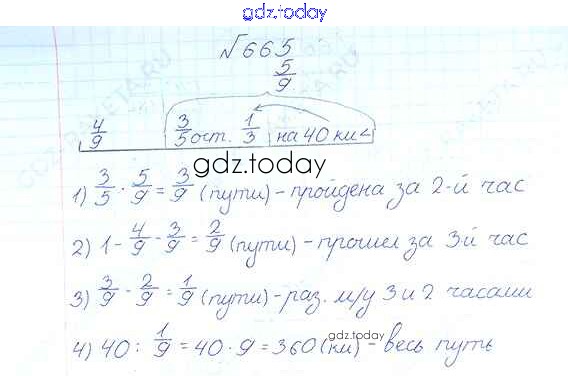 gdz.today
№665
5/9
4/9 3/5 ост. 1/3 на 40 км <
gdz.today
1) 3/5 · 5/9 = 3/9 (пути) - пройдена за 2-й час
2) 1 - 4/9 - 3/9 = 2/9 (пути) - прошел за 3-й час
3) 3/9 - 2/9 = 1/9 (пути) - раз. м/у 3 и 2 часами
gdz.today
4) 40 : 1/9 = 40 · 9 = 360 (км) - весь путь